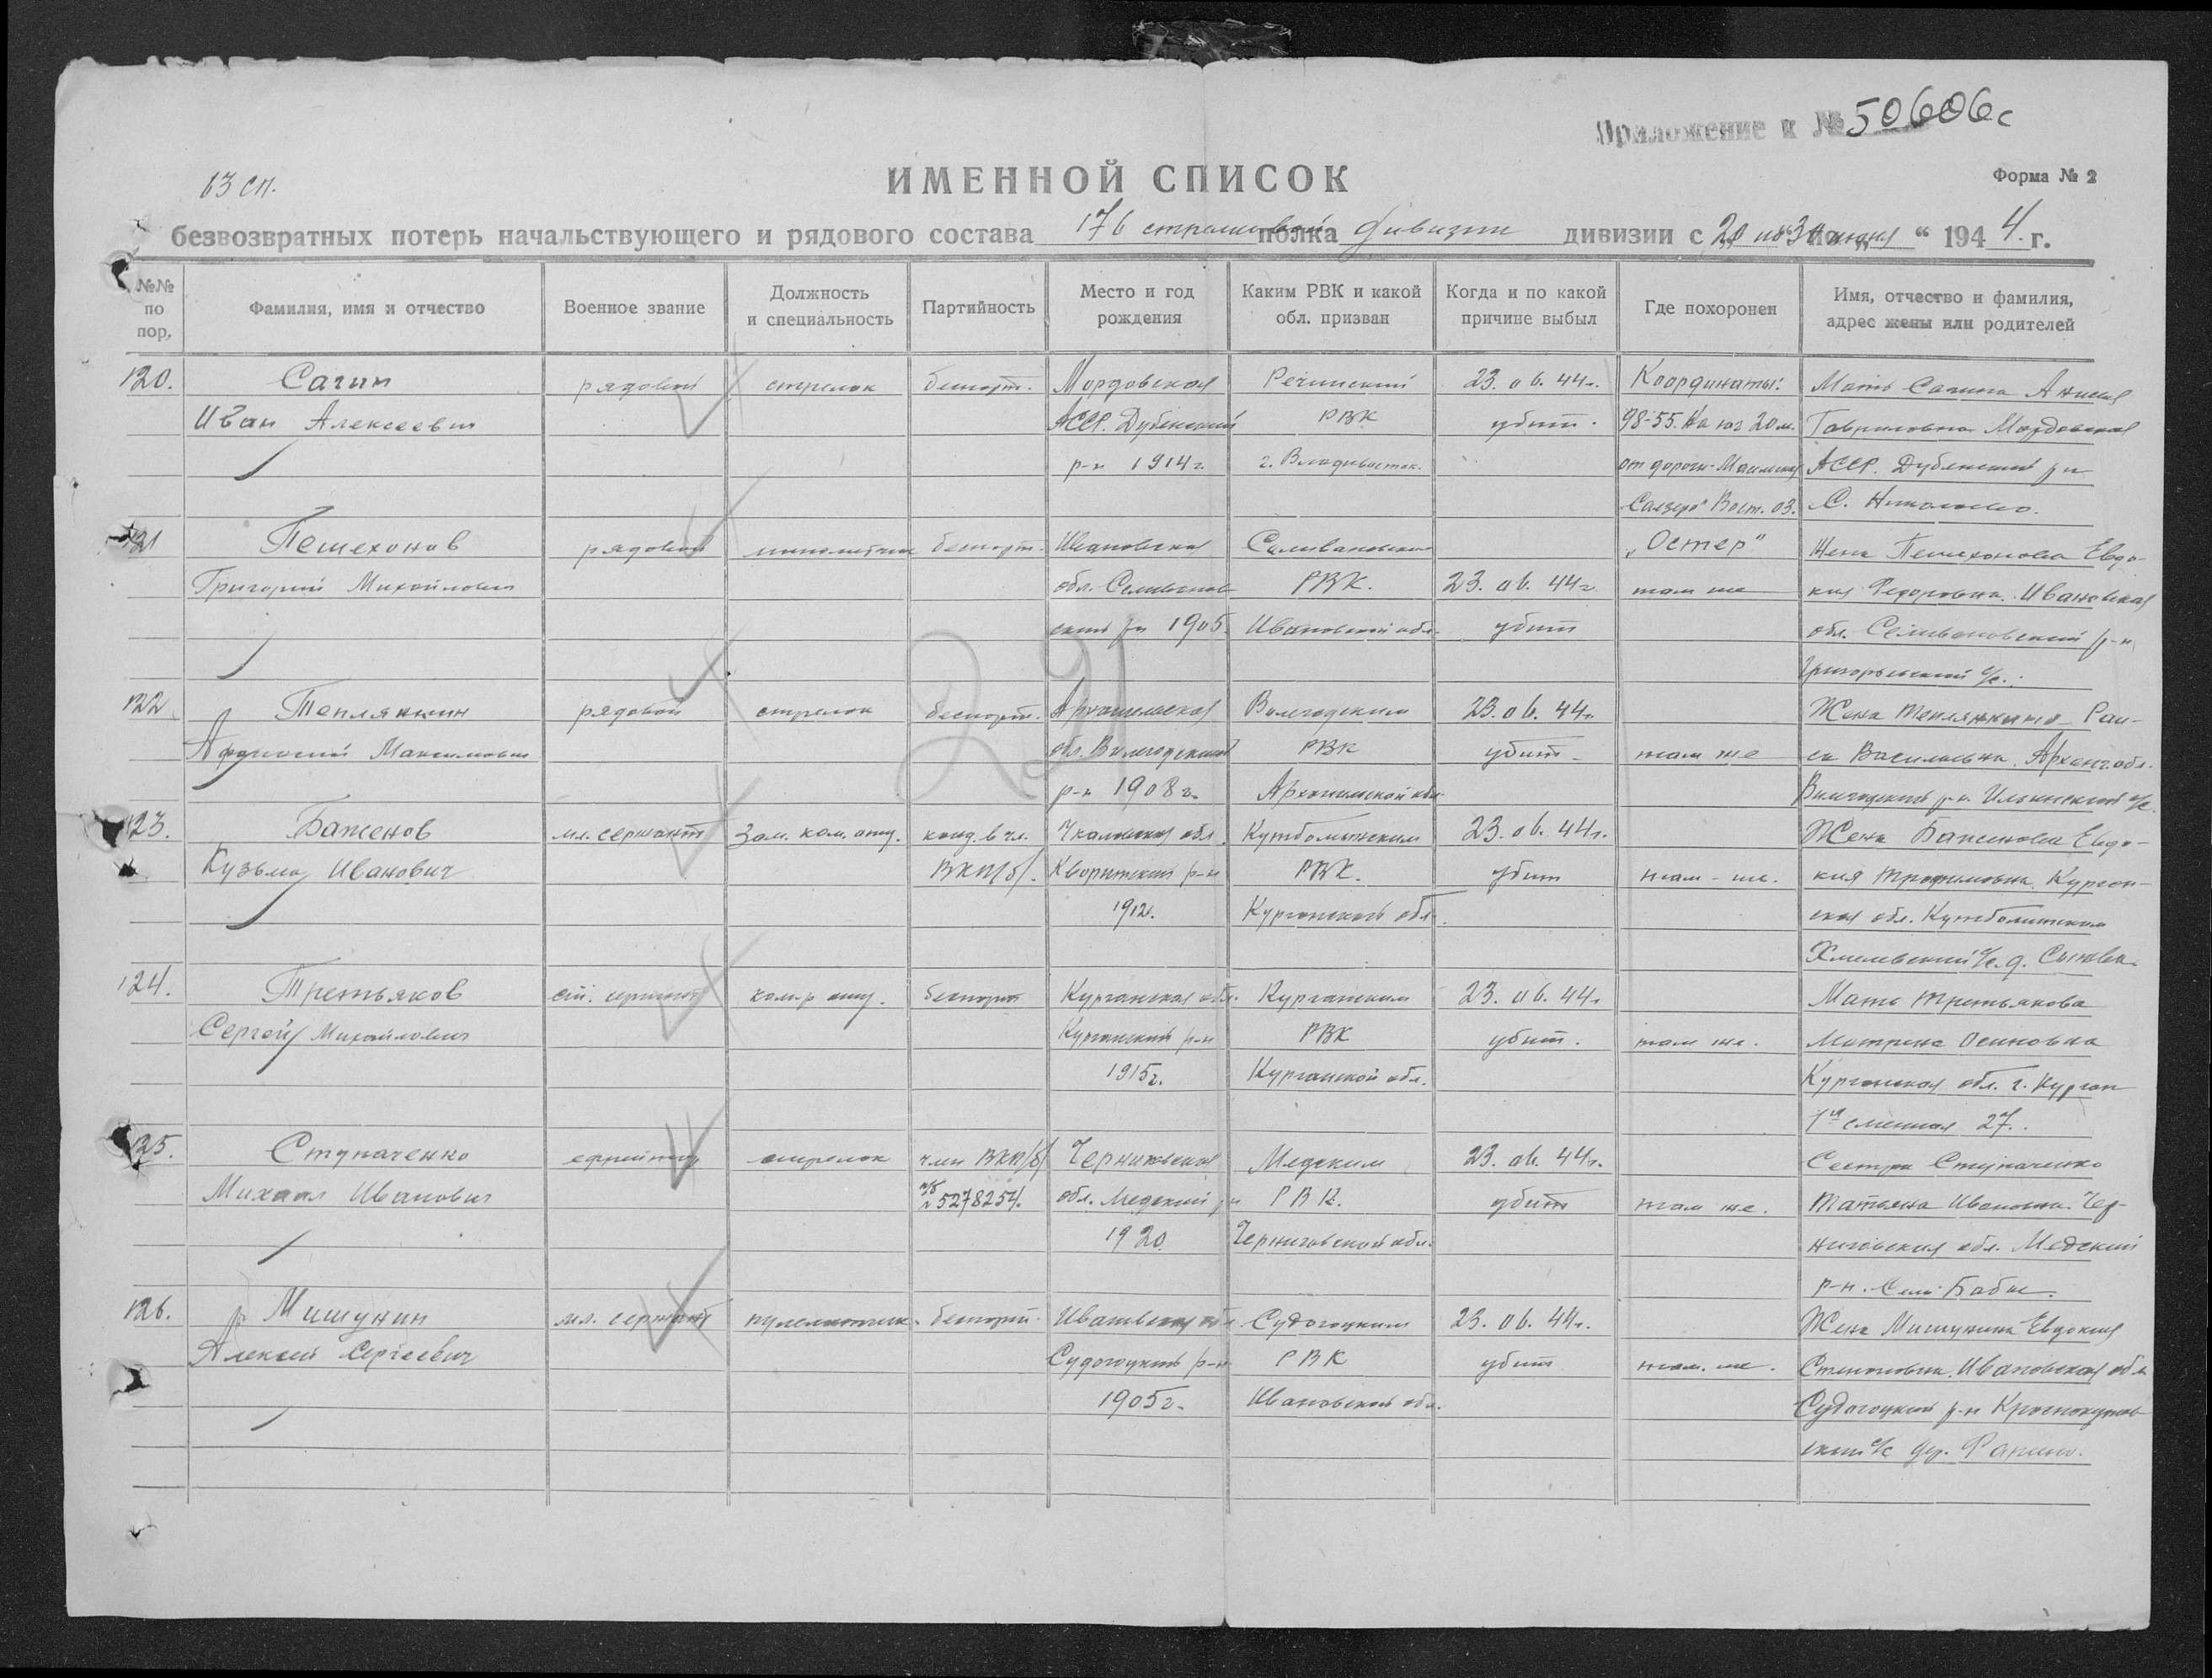 Приложение к № 50606с
63 сп.
ИМЕННОЙ СПИСОК
Форма № 2
безвозвратных потерь начальствующего и рядового состава 176 стрелковой полка дивизии дивизии с 20 по 30 июня “ 1944. г.
№№ по пор. Фамилия, имя и отчество Военное звание Должность и специальность Партийность Место и год рождения Каким РВК и какой обл. призван Когда и по какой причине выбыл Где похоронен Имя, отчество и фамилия, адрес жены или родителей
120. Сагин рядовой стрелок беспарт. Мордовская 23.06.44г. Координаты: Мать
Иван Алексеевич АССР. Дубенский РВК убит. 98-55. На юг 20 м. Гавриловна Мордовская
р-н 1914г. г. Владивосток. от дороги АССР. Дубенский р-н
Вост. оз. С.
121 Пешехонов рядовой беспарт. Ивановская Селивановским „Остер“ Жена Пешехонова Евдо-
Григорий Михайлович обл. Селиванов- РВК. 23.06.44г там же кия Федоровна. Ивановская
ский р-н 1905. Ивановской обл. убит обл. Селивановский р-н,
Григорьевский с/с.
122 Теплякшин рядовой стрелок беспарт. Архангельская Вилегодским 23.06.44г. Жена Раи-
Максимович обл. Вилегодский РВК убит. там же са Васильевна. Арханг. обл.
р-н 1908г. Архангельской обл. Вилегодский р-н. Ильинский с/с.
123. Баженов мл. сержант Зам. ком. отд. канд. в чл. Чкаловская обл. 23.06.44г. Жена Баженова Евдо-
Кузьма Иванович ВКП/б/. р-н РВК. убит там-же. кия Трофимовна. Курган-
1912. Курганской обл. ская обл.
с/с. д.
124. Третьяков ст. сержант ком-р отд. беспарт Курганская обл. Курганским 23.06.44г Мать Третьякова
Сергей Михайлович Курганский р-н РВК убит. там же. Матрена Осиповна
1915г. Курганской обл. Курганская обл. г. Курган
27.
125. Ступаченко ефрейтор стрелок член ВКП/б/ Черниговская Медским 23.06.44г. Сестра Ступаченко
Михаил Иванович п/б № 5278254. обл. Медский р-н РВК. убит там же. Татьяна Ивановна. Чер-
1920 Черниговской обл. ниговская обл. Медский
р-н. Село
126. Мишунин мл. сержант пулеметчик. беспарт. Ивановская обл. Судогодским 23.06.44г. Жена Мишунина Евдокия
Алексей Сергеевич Судогодский р-н РВК убит там же. Степановна. Ивановская обл
1905г. Ивановской обл. Судогодский р-н
ский с/с дер.
29